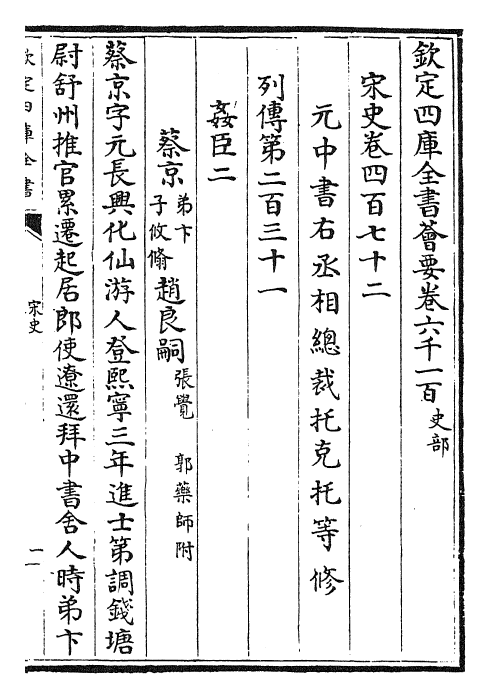 欽定四庫全書薈要卷六千一百史部
宋史卷四百七十二
元中書右丞相總裁托克托等修
列傳第二百三十一
姦臣二
蔡京弟卞子攸翛趙良嗣張覺 郭藥師附
蔡京字元長興化仙游人登熙寧三年進士第調錢塘
尉舒州推官累遷起居郎使遼還拜中書舍人時弟卞
欽定四庫全書
宋史
一